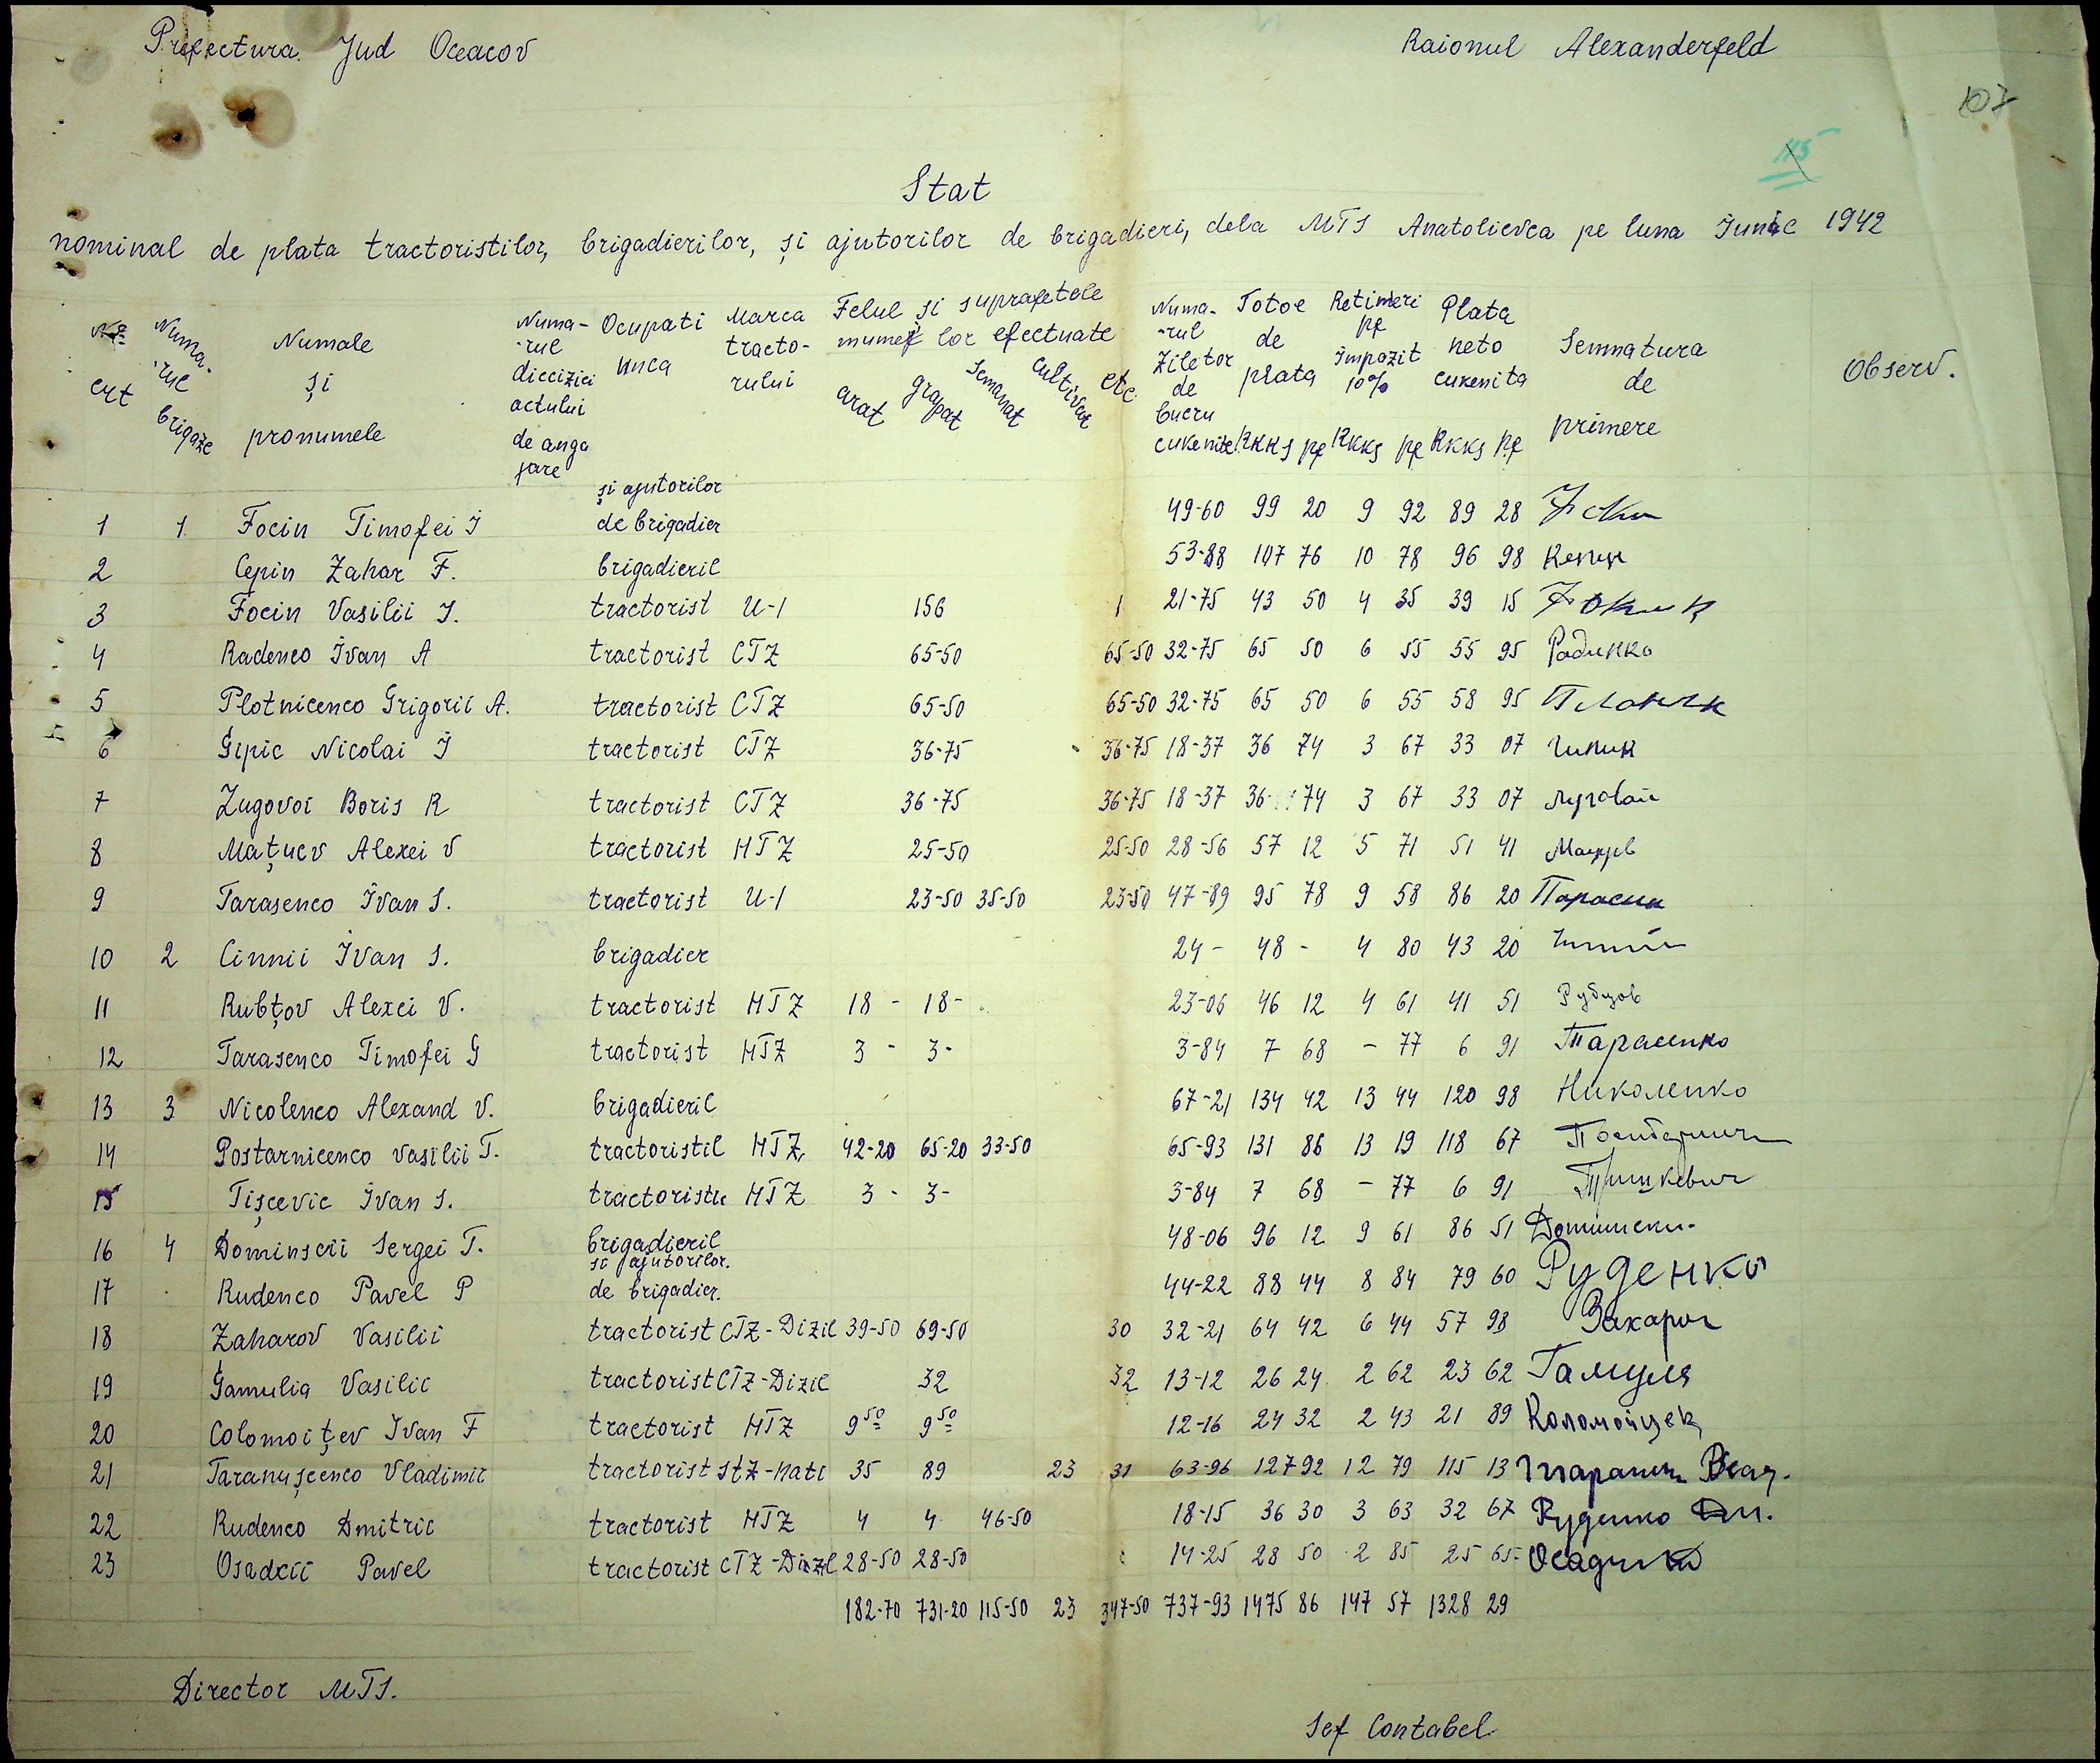 Prefectura Jud Oceacov Raionul Alexanderfeld
107
115
Stat
nominal de plata tractoristilor, brigadierilor, și ajutorilor de brigadieri, dela MTS Anatolievca pe luna Iunie 1942
No crt Numa-rul brigaze Numale și pronumele Numa-rul diecizici actului de angajare Ocupati unea Marca tracto-rului Felul și suprafetele muncilor efectuate arat grapat Semanat Cultivat etc Numa-rul Zilelor de lucru cukenite Totoe de plata RKKS pf Retineri pe Impozit 10% RKKS pf Plata neto cukenita RKKS pf Semnatura de primere Observ.
1 1 Focin Timofei I și ajutorilor de brigadier 49-60 99 20 9 92 89 28
2 Cepin Zahar F. brigadieril 53-88 107 76 10 78 96 98 Кепин
3 Focin Vasilii I. tractorist U-1 156 1 21-75 43 50 4 35 39 15 Фокин
4 Radenco Ivan A tractorist CTZ 65-50 65-50 32-75 65 50 6 55 55 95 Раденко
5 Plotnicenco Grigorii A. tractorist CTZ 65-50 65-50 32-75 65 50 6 55 58 95
6 Gipic Nicolai I tractorist CTZ 36-75 36-75 18-37 36 74 3 67 33 07 Гипик
7 Lugovoi Boris R tractorist CTZ 36-75 36-75 18-37 36 74 3 67 33 07 Луговой
8 Mațuev Alexei V tractorist HTZ 25-50 25-50 28-56 57 12 5 71 51 41 Мацуев
9 Tarasenco Ivan S. tractorist U-1 23-50 35-50 23-50 47-89 95 78 9 58 86 20 Тарасен
10 2 Cinnii Ivan S. brigadier 24- 48 - 4 80 43 20
11 Rubțov Alexei V. tractorist HTZ 18 - 18- 23-06 46 12 4 61 41 51 Рубцов
12 Tarasenco Timofei G tractorist HTZ 3 - 3- 3-84 7 68 - 77 6 91 Тарасенко
13 3 Nicolenco Alexand V. brigadieril 67-21 134 42 13 44 120 98 Николенко
14 Postarnicenco Vasilii T. tractoristil HTZ 42-20 65-20 33-50 65-93 131 86 13 19 118 67
15 Tișcevic Ivan S. tractoristu HTZ 3 - 3- 3-84 7 68 - 77 6 91 Тишкевич
16 4 Dominscii Sergei T. brigadieril 48-06 96 12 9 61 86 51
17 Rudenco Pavel P si ajutorilor. de brigadier. 44-22 88 44 8 84 79 60 Руденко
18 Zaharov Vasilii tractorist CTZ-Dizil 39-50 69-50 30 32-21 64 42 6 44 57 98 Захаров
19 Gamulia Vasilii tractorist CTZ-Dizil 32 32 13-12 26 24 2 62 23 62 Гамуля
20 Colomoițev Ivan F tractorist HTZ 9 50 9 50 12-16 24 32 2 43 21 89 Коломойцев
21 Taranușcenco Vladimir tractorist STZ-Nati 35 89 23 31 63-96 127 92 12 79 115 13
22 Rudenco Dmitrii tractorist HTZ 4 4 46-50 18-15 36 30 3 63 32 67 Руденко Дм.
23 Osadcii Pavel tractorist CTZ-Dizil 28-50 28-50 14-25 28 50 2 85 25 65
182-70 731-20 115-50 23 347-50 737-93 1475 86 147 57 1328 29
Director MTS.
Sef Contabel